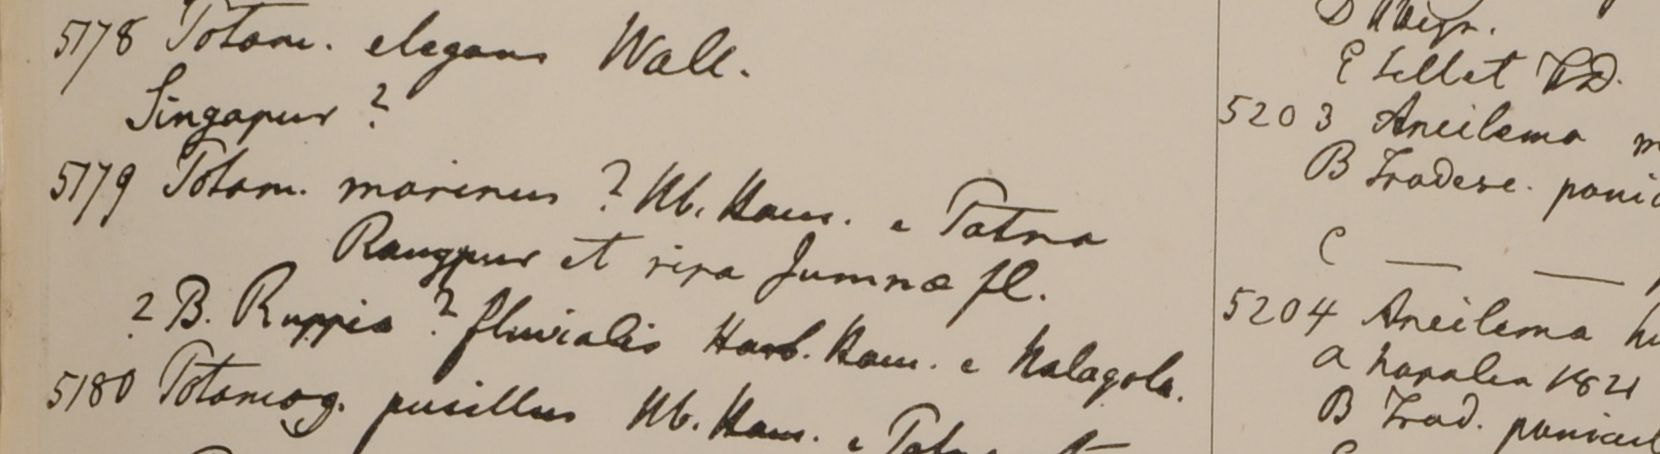 5178 Potam. elegans Wall.
Singapur ?
5179 Potam. marinus ? Hb. Ham. e Patna
Rangpur et ripa Jumnæ fl.
? B. Ruppia ? fluvialis Harb. Ham. e Nalagola.
5180 Potamog. pusillus Hb. Ham. e
E Sillet
5203 Aneilema
B Tradesc.
C — —
5204 Aneilema
a Napalia 1821
B Trad.